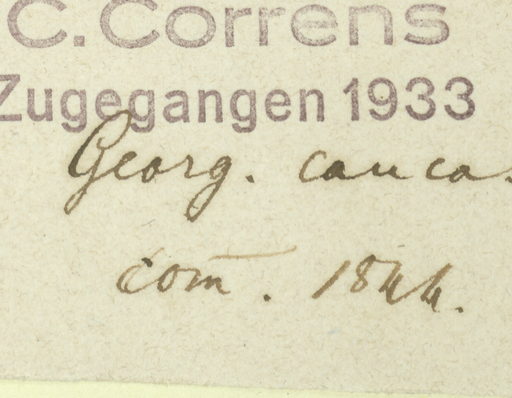 C. Correns
Zugegangen 1933
Georg. caucas
com̅. 1844.